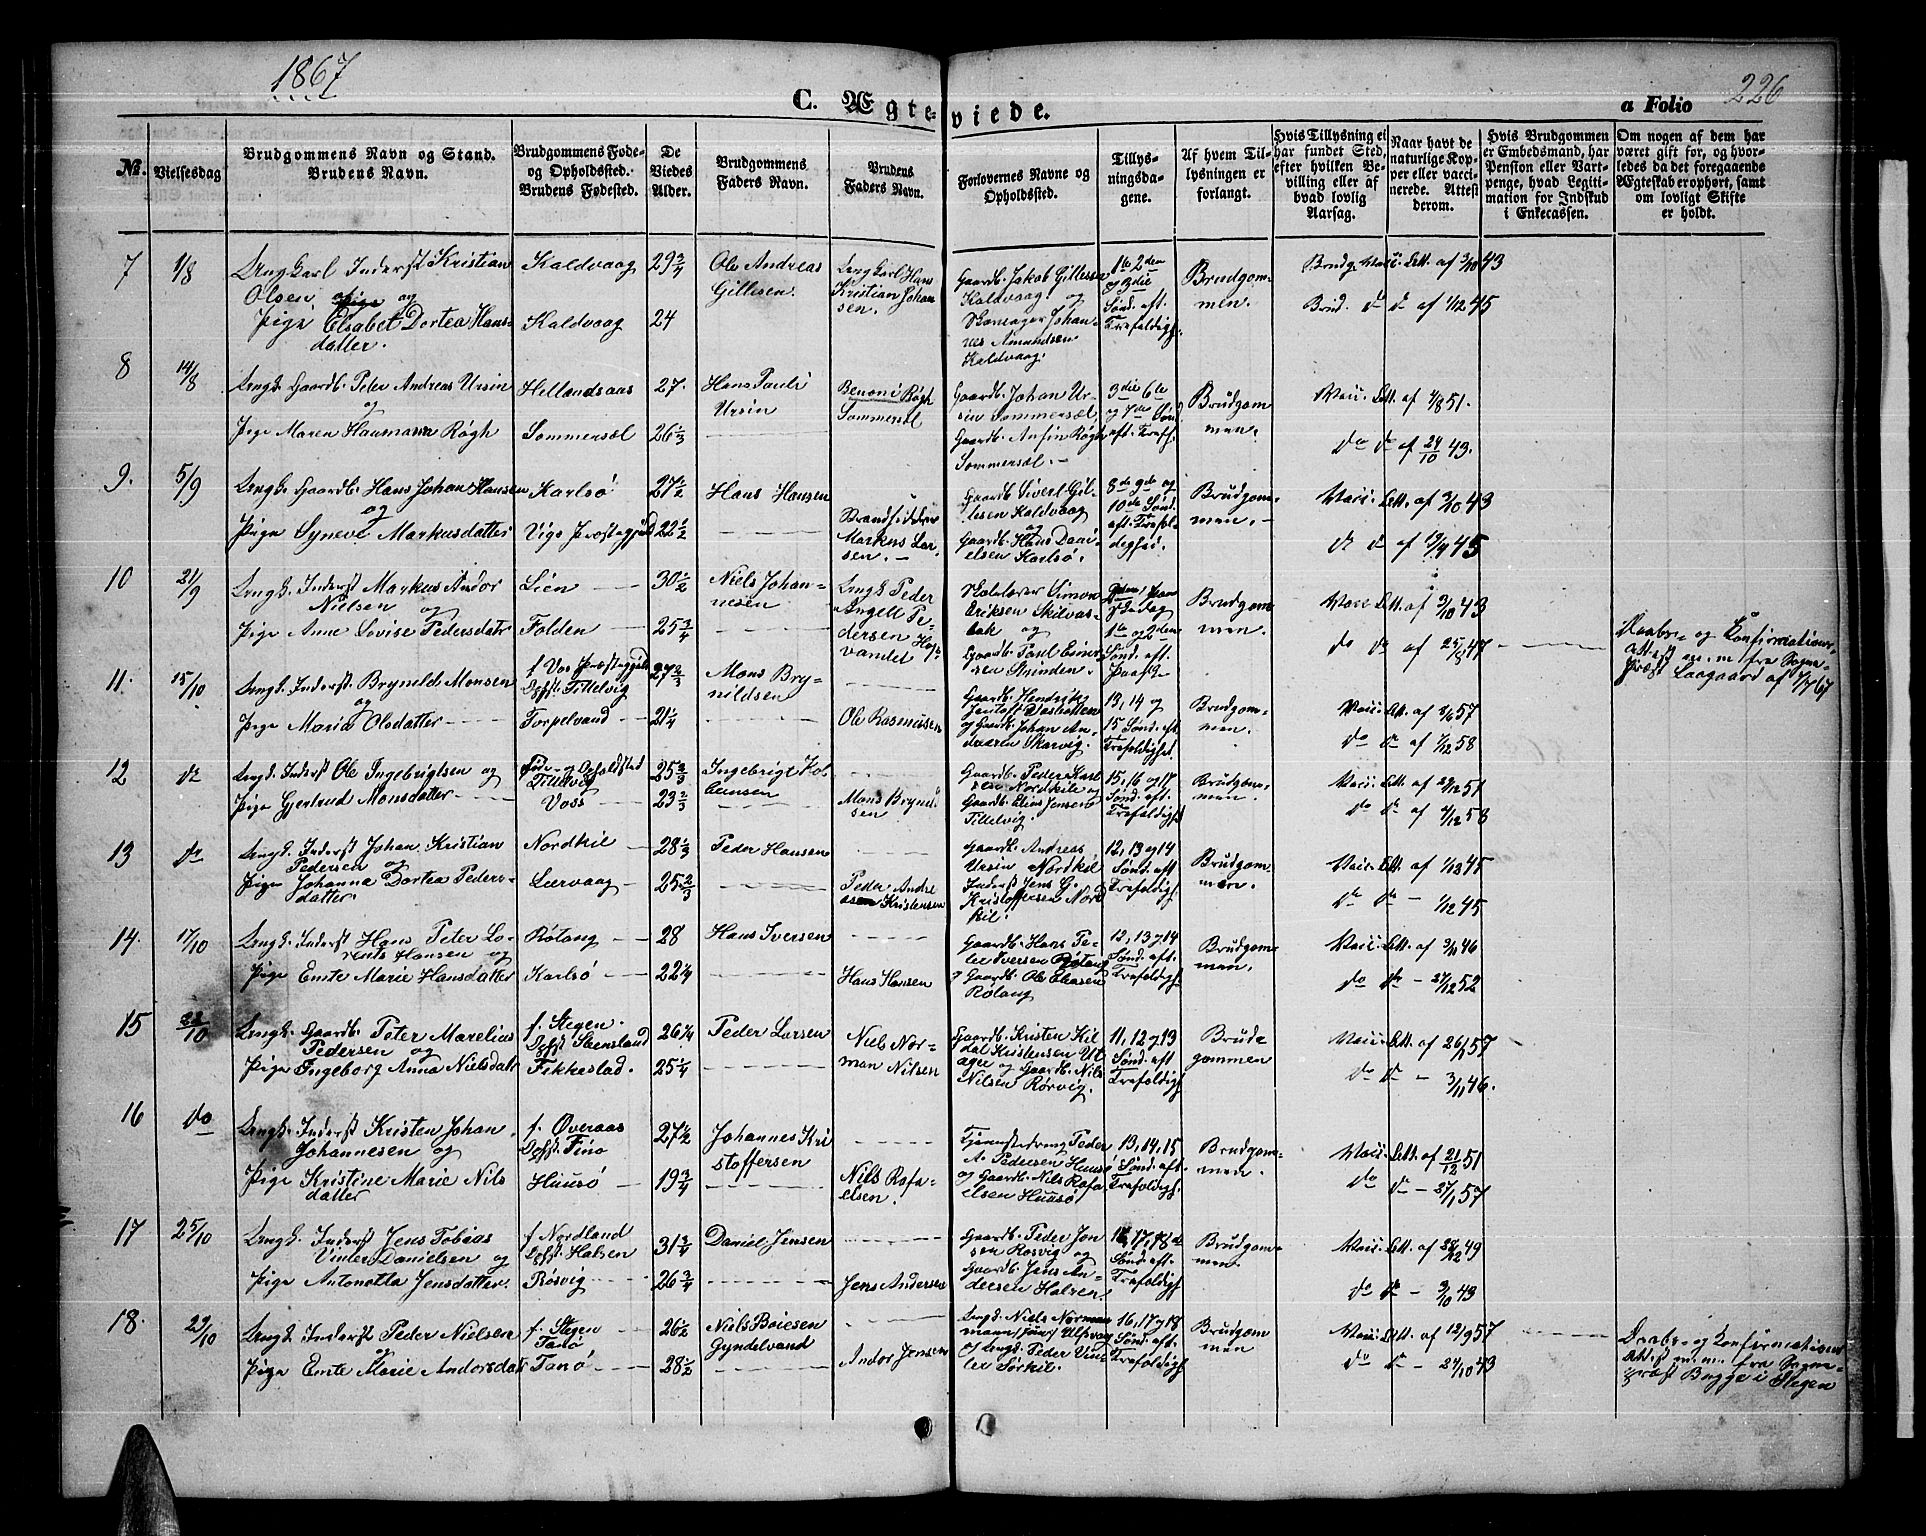 1867
226
C. Ægteviede.
a Folio
No.
Vielsesdag
Brudgommens Navn og Stand.
Brudens Navn.
Brudgommens Føde-
og Opholdssted.
Brudens Fødested.
De
Viedes
Alder.
Brudgommens
Faders Navn.
Brudens
Faders Navn.
Forlovernes Navne og
Opholdssted.
Tillys-
ningsda-
gene.
Af hvem Til-
lysningen er
forlangt.
Hvis Tillysning ei
har fundet Sted,
efter hvilken Be-
villing eller af
hvad lovlig
Aarsag.
Naar havt de
naturlige Kop-
per eller vacci-
nerede. Attest
derom.
Hvis Brudgommen
er Embedsmand, har
Pension eller Vart-
penge, hvad Legiti-
mation for Indskud
i Enkecassen.
Om nogen af dem har
været gift før, og hvor-
ledes da det foregaaende
Ægteskab er ophørt, samt
om lovligt Skifte
er holdt.
7 1/8 Ungkarl Inderst Kristian
Olsen og
Pige Elsabet Dortea Hans-
datter.
Kaldvaag
Kaldvaag
29 3/4
24
Ole Andreas
Gillesen.
Ungkarl Hans
Kristian Johan
sen.
Gaardb. Jakob Gillesen
Kaldvaag og
Skomager Johan-
nes Amundsen
Kaldvaag.
1te 2den
og 3die
Sønd. eft.
Trefoldigh.
Brudgom-
men.
Brudg. Vacc. Att. af 3/10 43
Brud. do do af 1/12 45
8 14/8 Ungk. Gaardb. Peter Andreas Ursin
og
Pige Maren Haumann Røgh
Hellandsaas
Sommersæl
27.
26 1/3
Hans Pauli
Ursin
Benoni Røgh
Sommersæl
Gaardb. Johan Ur-
sin Sommersæl
Gaardb. Anfin Røgh
Sommersæl.
3die 6te
og 7de Sønd
eft. Trefh.
Brudgom
men.
Vacc. Att. af 1/8 51.
do do af 24/10 43.
9. 5/9 Ungk. Gaardb. Hans Johan Hansen
og
Pige Syneve Markusdatter
Karlsø
Vigs Præstegjeld
27 1/2
22 1/2
Hans Hansen
Markus Lar-
sen.
Gaardb. Sivert Gil-
lesen Kaldvaag
og
Gaardb. Hans Dani-
elsen Karlsø.
8de 9de og
10de Sønd.
eft. Trefol-
dighed.
Brudgom-
men.
Vacc. Att. af 3/10 43
do do af 19/9 45
10 21/9 Ungk. Inderst Markus Andor
Nielsen og
Pige Anne Lovise Pedersdatr
Lien
Folden
30 1/2
25 3/4
Niels Johan-
nesen
Ungk Peder
Angell Pe-
dersen
Skolelærer Simon
Eriksen Skilvas-
bak og
Gaardb. Paul Einer
sen Strinden
1te og 2den
Sønd. eft.
Paaske
Brudgom
men.
Vacc Att. af 3/10 43
do do af 25/8 47
Daabs- og Konfirmations-
attest m. m. fra Sogne-
præst Laagaard af 1/7 67
11. 15/10 Ungk. Inderst. Brynild Monsen
og
Pige Maria Olsdatter
f. Vos Præstegjeld
Opst. Tittelvig
Torpelvand
27 2/3
21 1/4
Mons Bry-
nildsen
Ole Rasmussen
Gaardb. Hendrik
Jentoft
og Gaardb. Johan An-
dersen Skarvig.
13, 14 og
15 Sønd. eft
Trefoldighed.
Brudgom-
men.
Vacc. Att. af 8/6 57
do do af 1/12 58
12 do Ungk. Inderst Ole Ingebrigtsen og
Pige Gjertrud Monsdatter
Føde- og Opholdsted
Tittelvig
Voss
25 3/3
23 2/3
Ingebrigt Kol
bensen
Mons Brynild
sen
Gaardb. Peder Karl
sen Nordkile og
Gaardb. Elias Jensen
Tittelvig.
15, 16 og 17
Sønd. eft.
Trefoldigh
Brudgom-
men.
Vacc. Att. af 29/12 51
do do af 4/12 58
13 do Ungk. Inderst Johan Kristian
Pedersen og
Pige Johanna Dortea Peders-
datter.
Nordkil
Leervaag
28 1/3
25 2/3
Peder Hansen
Peder Andre
asen Kristensen
Gaardb. Andreas
Ursin Nordkil
Inderst Jens G.
Kristoffersen Nord
kil.
12, 13 og 14
Sønd. eft
Trefoldigh.
Brudgom-
men.
Vacc. Att. af 1/12 45
do do 1/12 45
14. 17/10 Ungk. Inderst Hans Peter Lo-
rents Hansen og
Pige Emte Marie Hansdatter
Røtang
Karlsø
28
22 1/4
Hans Iversen
Hans Hansen
Gaardb. Hans Pe-
ter Iversen Røtang
og Gaardb. Ole Eliasen
Røtang
12, 13 og 14
Sønd. eft.
Trefoldigh
Brudgom-
men.
Vacc. Att. af 3/11 46
do do 27/12 52
15 22/10 Ungk. Gaardb. Peter Marelius
Pedersen og
Pige Ingeborg Anna Nielsdatr
f. Stegen.
Opst Steensland
Fikkestad.
26 1/4
25 1/4
Peder Larsen
Niels Nor-
man Nilsen
Gaardb. Kristen Kil
dal Kristensen Ut
ager og Gaardb. Nils
Nilsen Rørvig.
11, 12 og 13
Sønd. eft
Trefoldigh
Brude
gommen
Vacc. Att. af 26/1 57
do do 3/11 46.
16 do Ungk. Inderst Kristen Johan
Johannesen og
Pige Kristine Marie Nils
datter
f. Øveraas
Opst. Finø
Huusø
27 1/2
19 3/4
Johannes Kri
stoffersen
Nils Rafa-
elsen.
Tjenestedreng Peder
A. Pedersen Huusø
og Gaardb. Nils Rafa
elsen Huusø
13, 14, 15
Sønd. eft.
Trefoldigh.
Brudgom-
men.
Vacc. Att. af 21/12 51
do do 27/1 57
17 25/10 Ungk. Inderst Jens Tobias
Vinter Danielsen og
Pige Antonetta Jensdatter.
f. Nordland
Opst Halsen
Røsvig
31 3/4
26 3/4
Daniel Jensen
Jens Andersen
Gaardb. Peder Jon
sen Røsvig og
Gaardb. Jens An-
dersen Halsen
16, 17, 18de
Sønd. eft.
Trefoldigh
Brudgom-
men.
Vacc. Att. af 28/12 49
do do 3/10 43
18. 29/10 Ungk. Inderst Peder Nielsen
og
Pige Emte Marie Andorsdatr
f. Stegen
Tanø
Tanø
26 1/2
28 1/2
Niels Boiesen
Gyndelvand
Andor Jensen
Ungk. Niels Norman
mann (jun) Ulfsvaag
og Ungk. Peder Vin-
ter Sørkil.
16, 17 og 18
Sønd. eft.
Trefoldigh
Brudgom
men
Vacc. Att. af 12/9 57
do do 24/10 43
Daabs- og Konfirmations
attest m. m. fra Sogne-
præst Bugge i Stegen